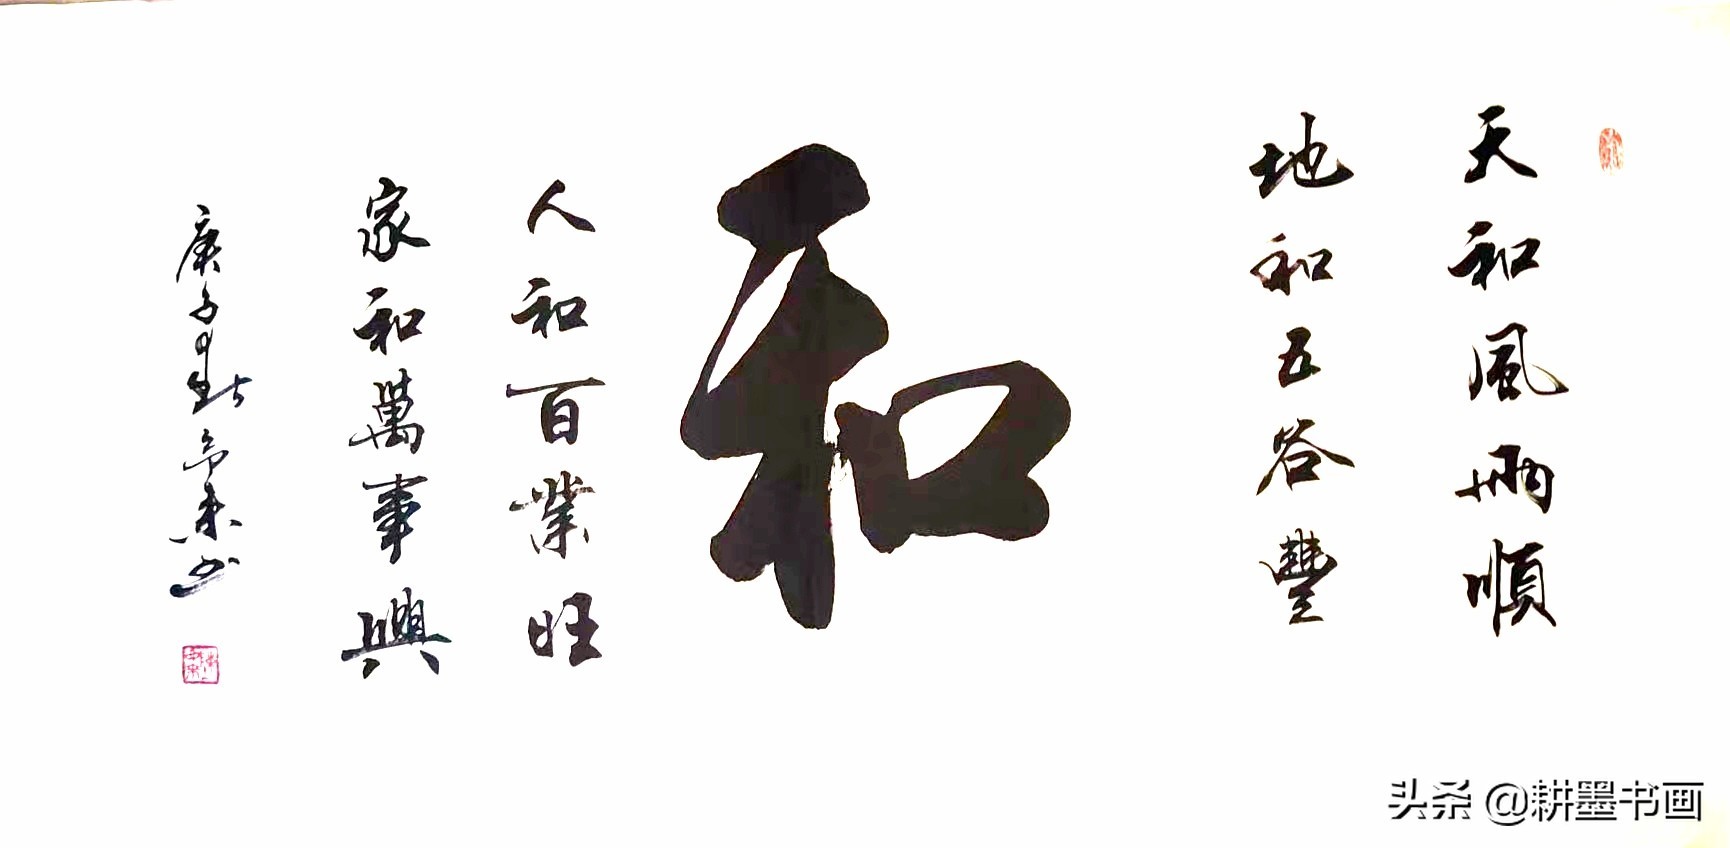 天和風雨順
地和五谷豐
和
人和百業旺
家和萬事興
庚子
头条 @耕墨书画